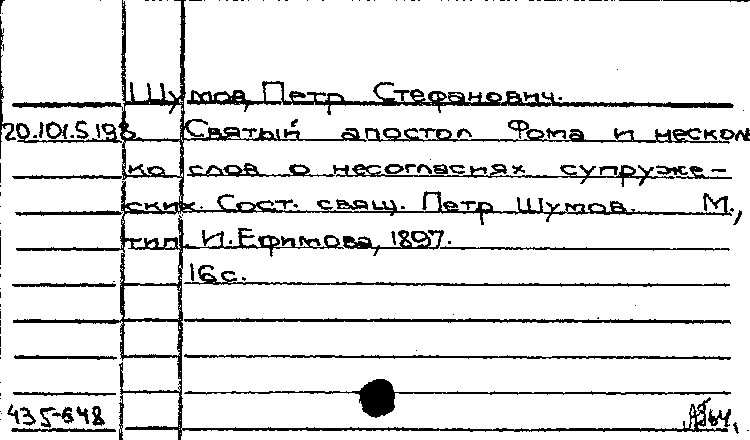 Шумов, Петр Стефанович.
20.101.5.198. Святый апостол Фома и несколь
ко слов о несогласиях супруже-
ских. Сост. свящ. Петр Шумов. М.,
тип. И. Ефимова, 1897.
16 с.
435-648